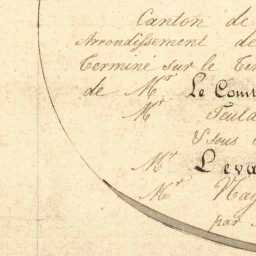 Canton de
Arrondissement de
Terminé sur le Ter
de Mr. Le Comt
Mr. Teula
S sous
Mr. Leva
Mr. Nay
par